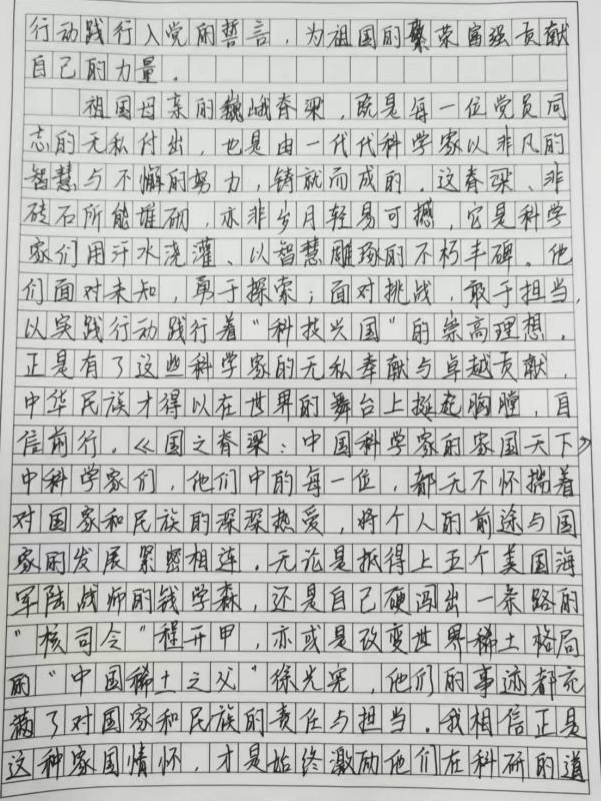 行动践行入党的誓言，为祖国的繁荣富强贡献
自己的力量。
祖国母亲的巍峨脊梁，既是每一位党员同
志的无私付出，也是由一代代科学家以非凡的
智慧与不懈的努力，铸就而成的。这脊梁、非
砖石所能堆砌，亦非岁月轻易可撼，它是科学
家们用汗水浇灌、以智慧雕琢的不朽丰碑。他
们面对未知，勇于探索；面对挑战，敢于担当，
以实践行动践行着“科技兴国”的崇高理想。
正是有了这些科学家的无私奉献与卓越贡献，
中华民族才得以在世界的舞台上挺起胸膛，自
信前行。《国之脊梁：中国科学家的家国天下》
中科学家们，他们中的每一位，都无不怀揣着
对国家和民族的深深热爱，将个人的前途与国
家的发展紧密相连。无论是抵得上五个美国海
军陆战师的钱学森，还是自己硬闯出一条路的
“核司令”程开甲，亦或是改变世界稀土格局
的“中国稀土之父”徐光宪，他们的事迹都充
满了对国家和民族的责任与担当。我相信正是
这种家国情怀，才是始终激励他们在科研的道